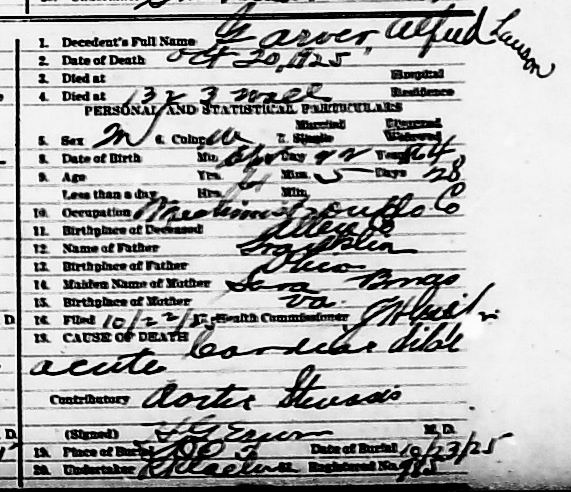 1. Decedent's Full Name Garver Alfred Lawson
2. Date of Death Oct 20, 1925
3. Died at Hospital
4. Died at 1323 Wall Residence
PERSONAL AND STATISTICAL PARTICULARS
Married Divorced
5. Sex M 6. Color W 7. Single Widowed
8. Date of Birth Mo. Day 22 Year 64
9. Age Yrs. 61 Mos. 5 Days 28
Less than a day Hrs. Min.
10. Occupation Co
11. Birthplace of Deceased Allen
12. Name of Father Franklin
13. Birthplace of Father Ohio
14. Maiden Name of Mother Sara
15. Birthplace of Mother Va.
16. Filed 10/22/25 Health Commissioner
18. CAUSE OF DEATH
acute Cardiac dila
Contributory Aortic Stenosis
(Signed) M. D.
19. Place of Burial Date of Burial 10/23/25
20. Undertaker Registered No. 985